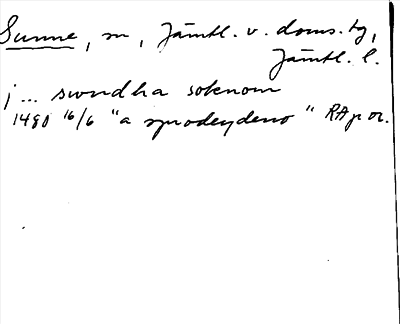 Sunne, sn, Jämtl. v. doms. tg,
Jämtl. l.
j ... swndha soknom
1480 16/6 "a sprodeydeno" RAp or.